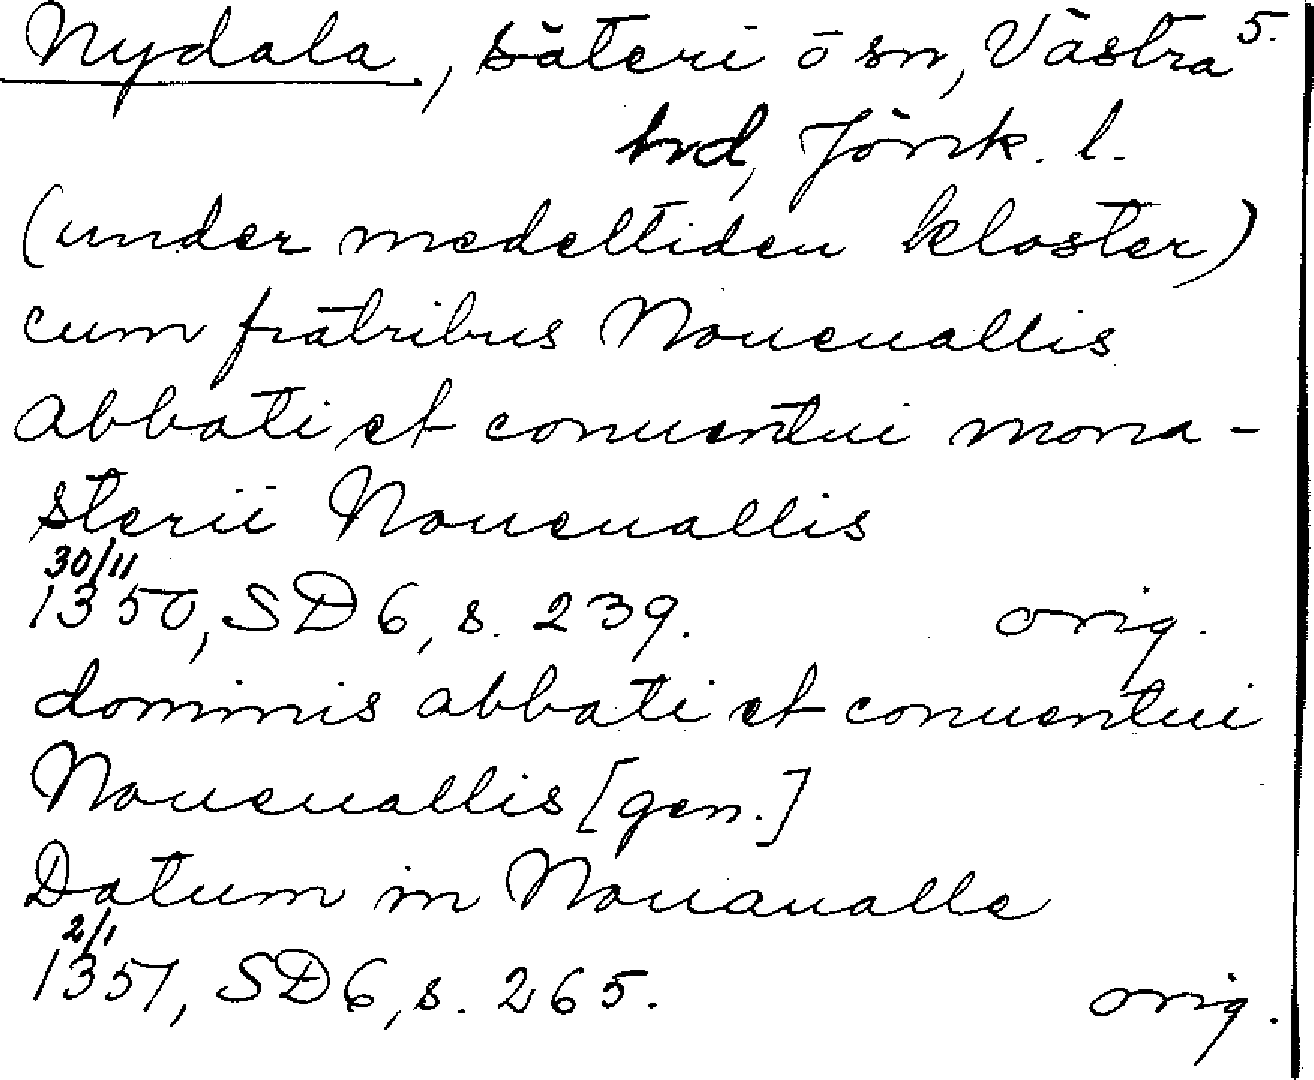 Nydala, säteri o sn, Västra 5.
hrd, Jönk. l.
(under medeltiden kloster)
cum fratribus Noueuallis
abbati et conuentui mona-
sterii Noueuallis
30/11
1350, SD 6, s. 239. orig.
dominis abbati et conuentui
Noueuallis [gen.]
Datum in Nouaualle
2/1
1351, SD 6, s. 265. orig.